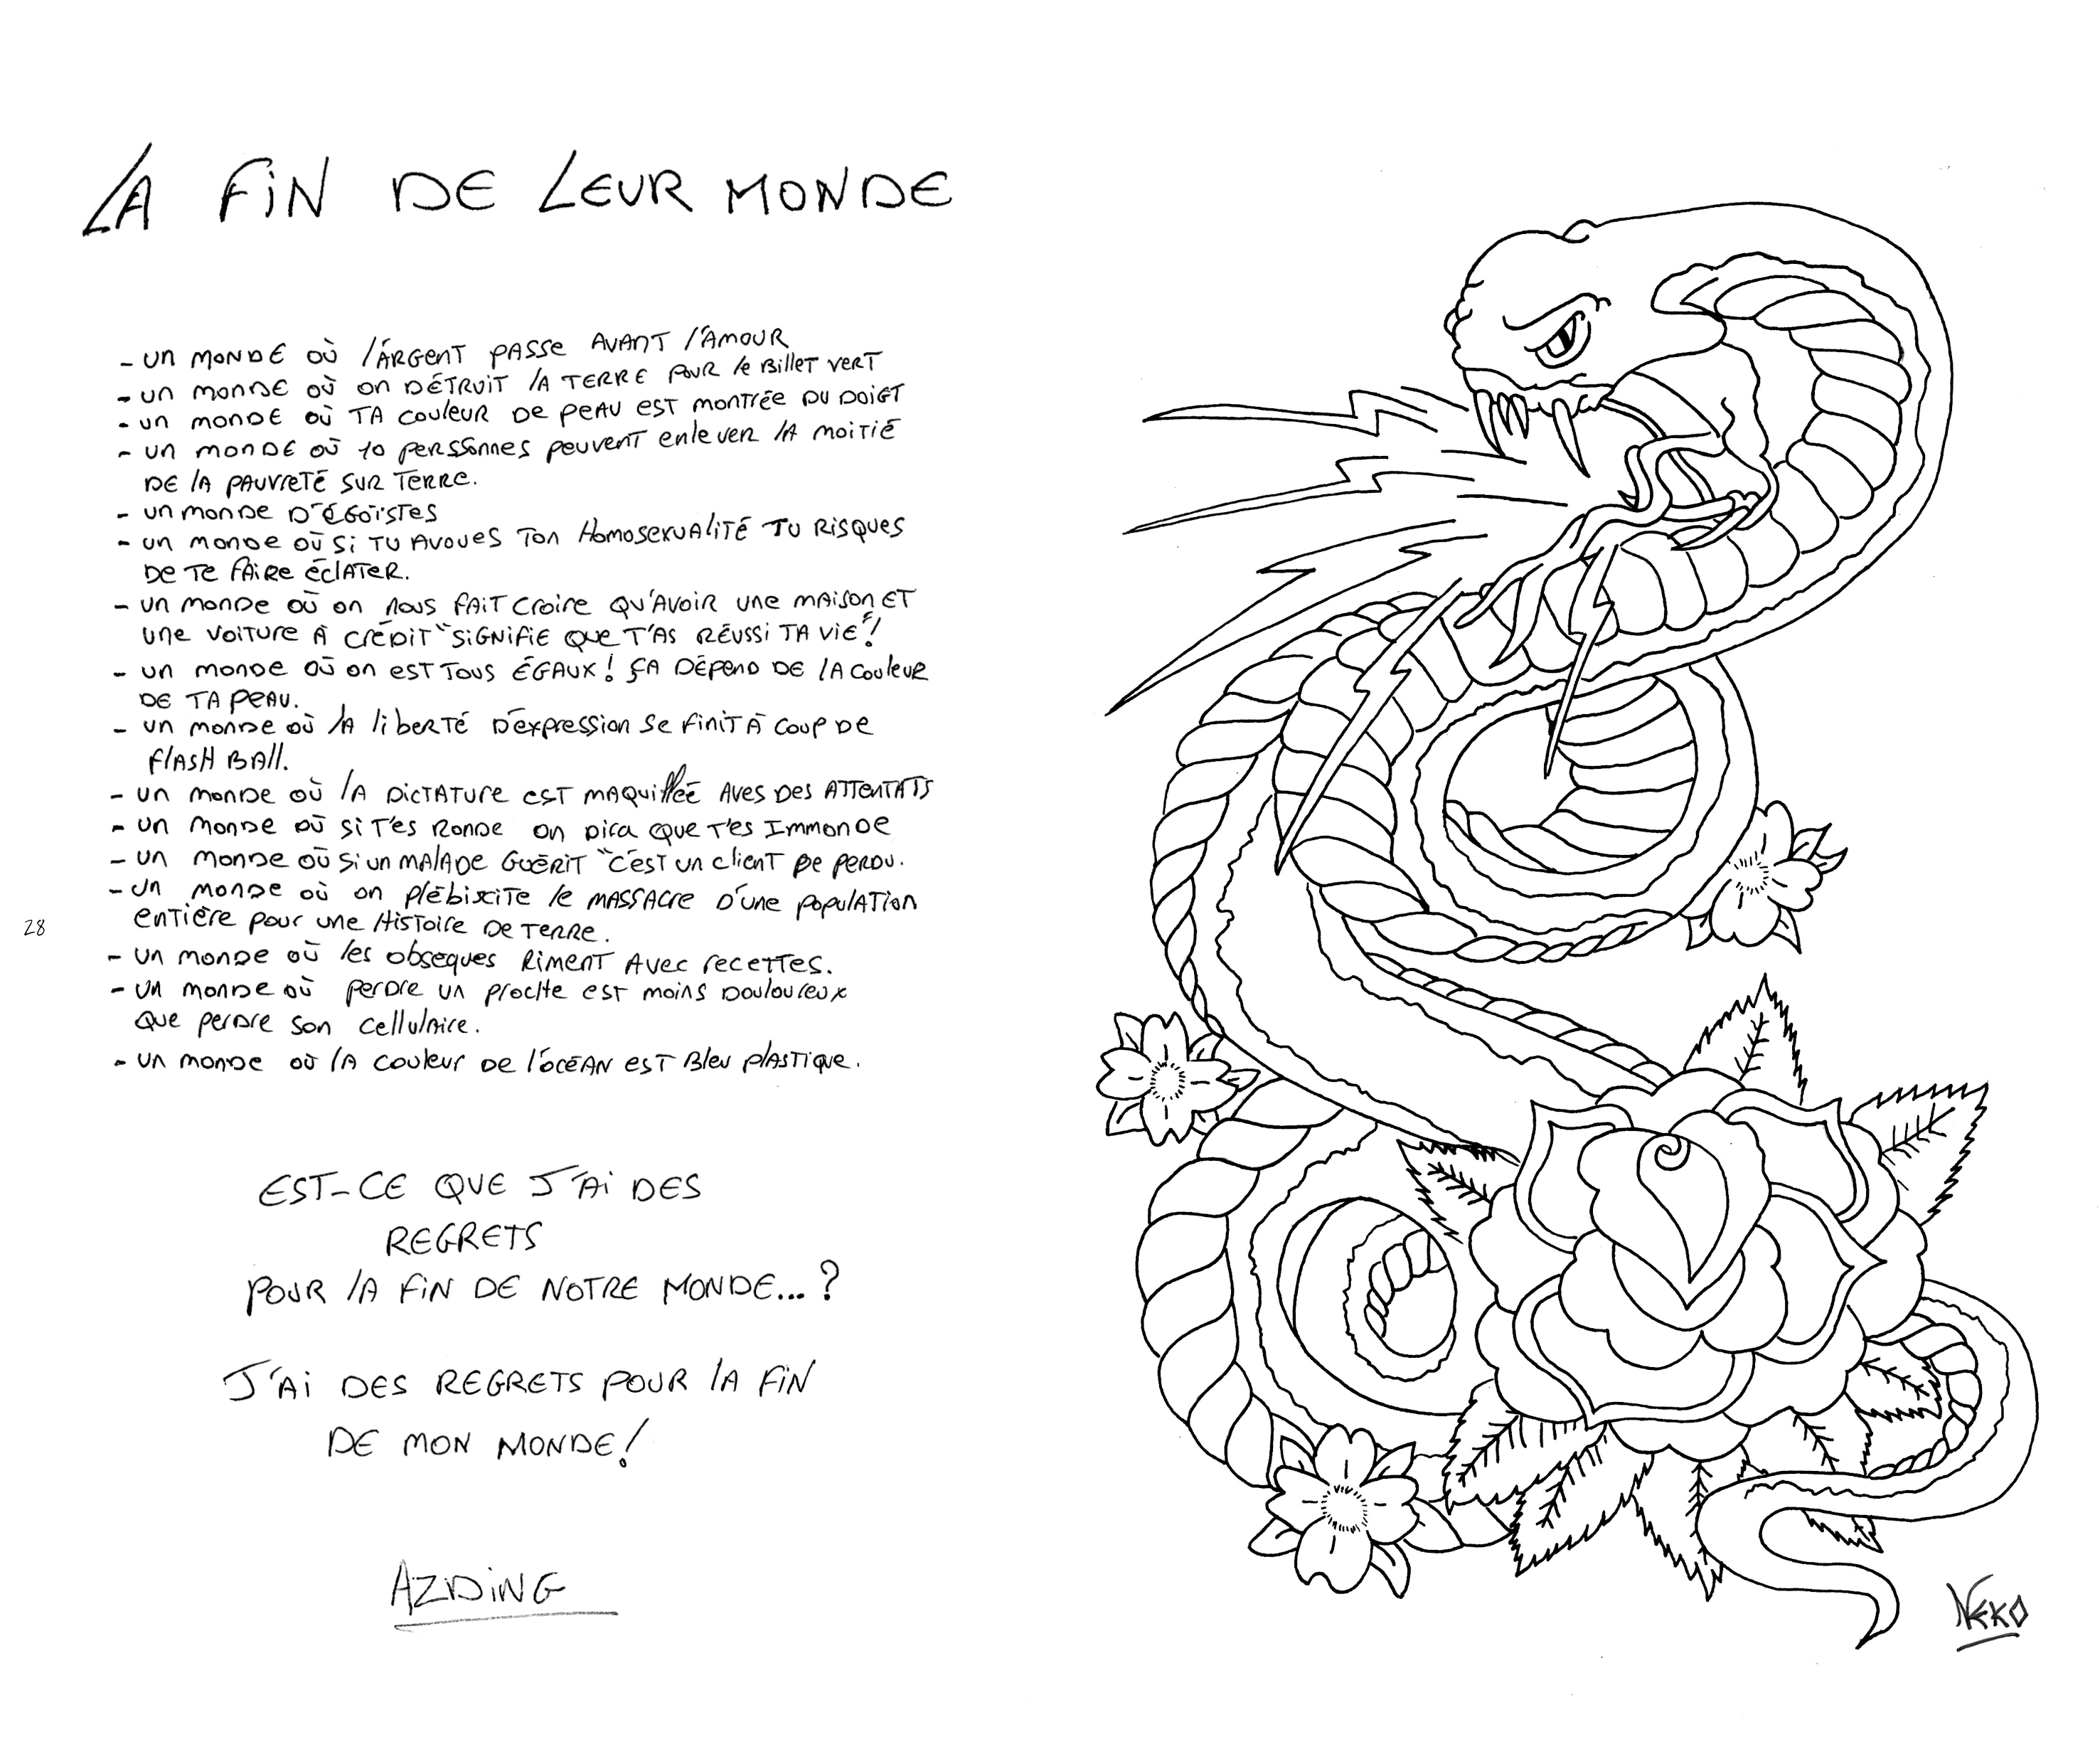 LA FIN DE LEUR MONDE
- UN MONDE OÙ L'ARGENT PASSE AVANT L'AMOUR
- UN MONDE OÙ ON DÉTRUIT LA TERRE POUR LE BILLET VERT
- UN MONDE OÙ TA COULEUR DE PEAU EST MONTRÉE DU DOIGT
- UN MONDE OÙ 10 PERSSONNES PEUVENT ENLEVER LA MOITIÉ
DE LA PAUVRETÉ SUR TERRE.
- UN MONDE D'ÉGOÏSTES
- UN MONDE OÙ SI TU AVOUES TON HOMOSEXUALITÉ TU RISQUES
DE TE FAIRE ÉCLATER.
- UN MONDE OÙ ON NOUS FAIT CROIRE QU'AVOIR UNE MAISON ET
UNE VOITURE À CRÉDIT "SIGNIFIE QUE T'AS RÉUSSI TA VIE"!
- UN MONDE OÙ ON EST TOUS ÉGAUX! ÇA DÉPEND DE LA COULEUR
DE TA PEAU.
- UN MONDE OÙ LA LIBERTÉ D'EXPRESSION SE FINIT À COUP DE
FLASH BALL.
- UN MONDE OÙ LA DICTATURE EST MAQUILLÉE AVES DES ATTENTATS
- UN MONDE OÙ SI T'ES RONDE ON DIRA QUE T'ES IMMONDE
- UN MONDE OÙ SI UN MALADE GUÉRIT "C'EST UN CLIENT DE PERDU.
- UN MONDE OÙ ON PLÉBISCITE LE MASSACRE D'UNE POPULATION
ENTIÈRE POUR UNE HISTOIRE DE TERRE.
- UN MONDE OÙ LES OBSEQUES RIMENT AVEC RECETTES.
- UN MONDE OÙ PERDRE UN PROCHE EST MOINS DOULOUREUX
QUE PERDRE SON CELLULAIRE.
- UN MONDE OÙ LA COULEUR DE L'OCÉAN EST BLEU PLASTIQUE.
28
EST-CE QUE J'AI DES
REGRETS
POUR LA FIN DE NOTRE MONDE...?
J'AI DES REGRETS POUR LA FIN
DE MON MONDE!
AZIDING
NEKO